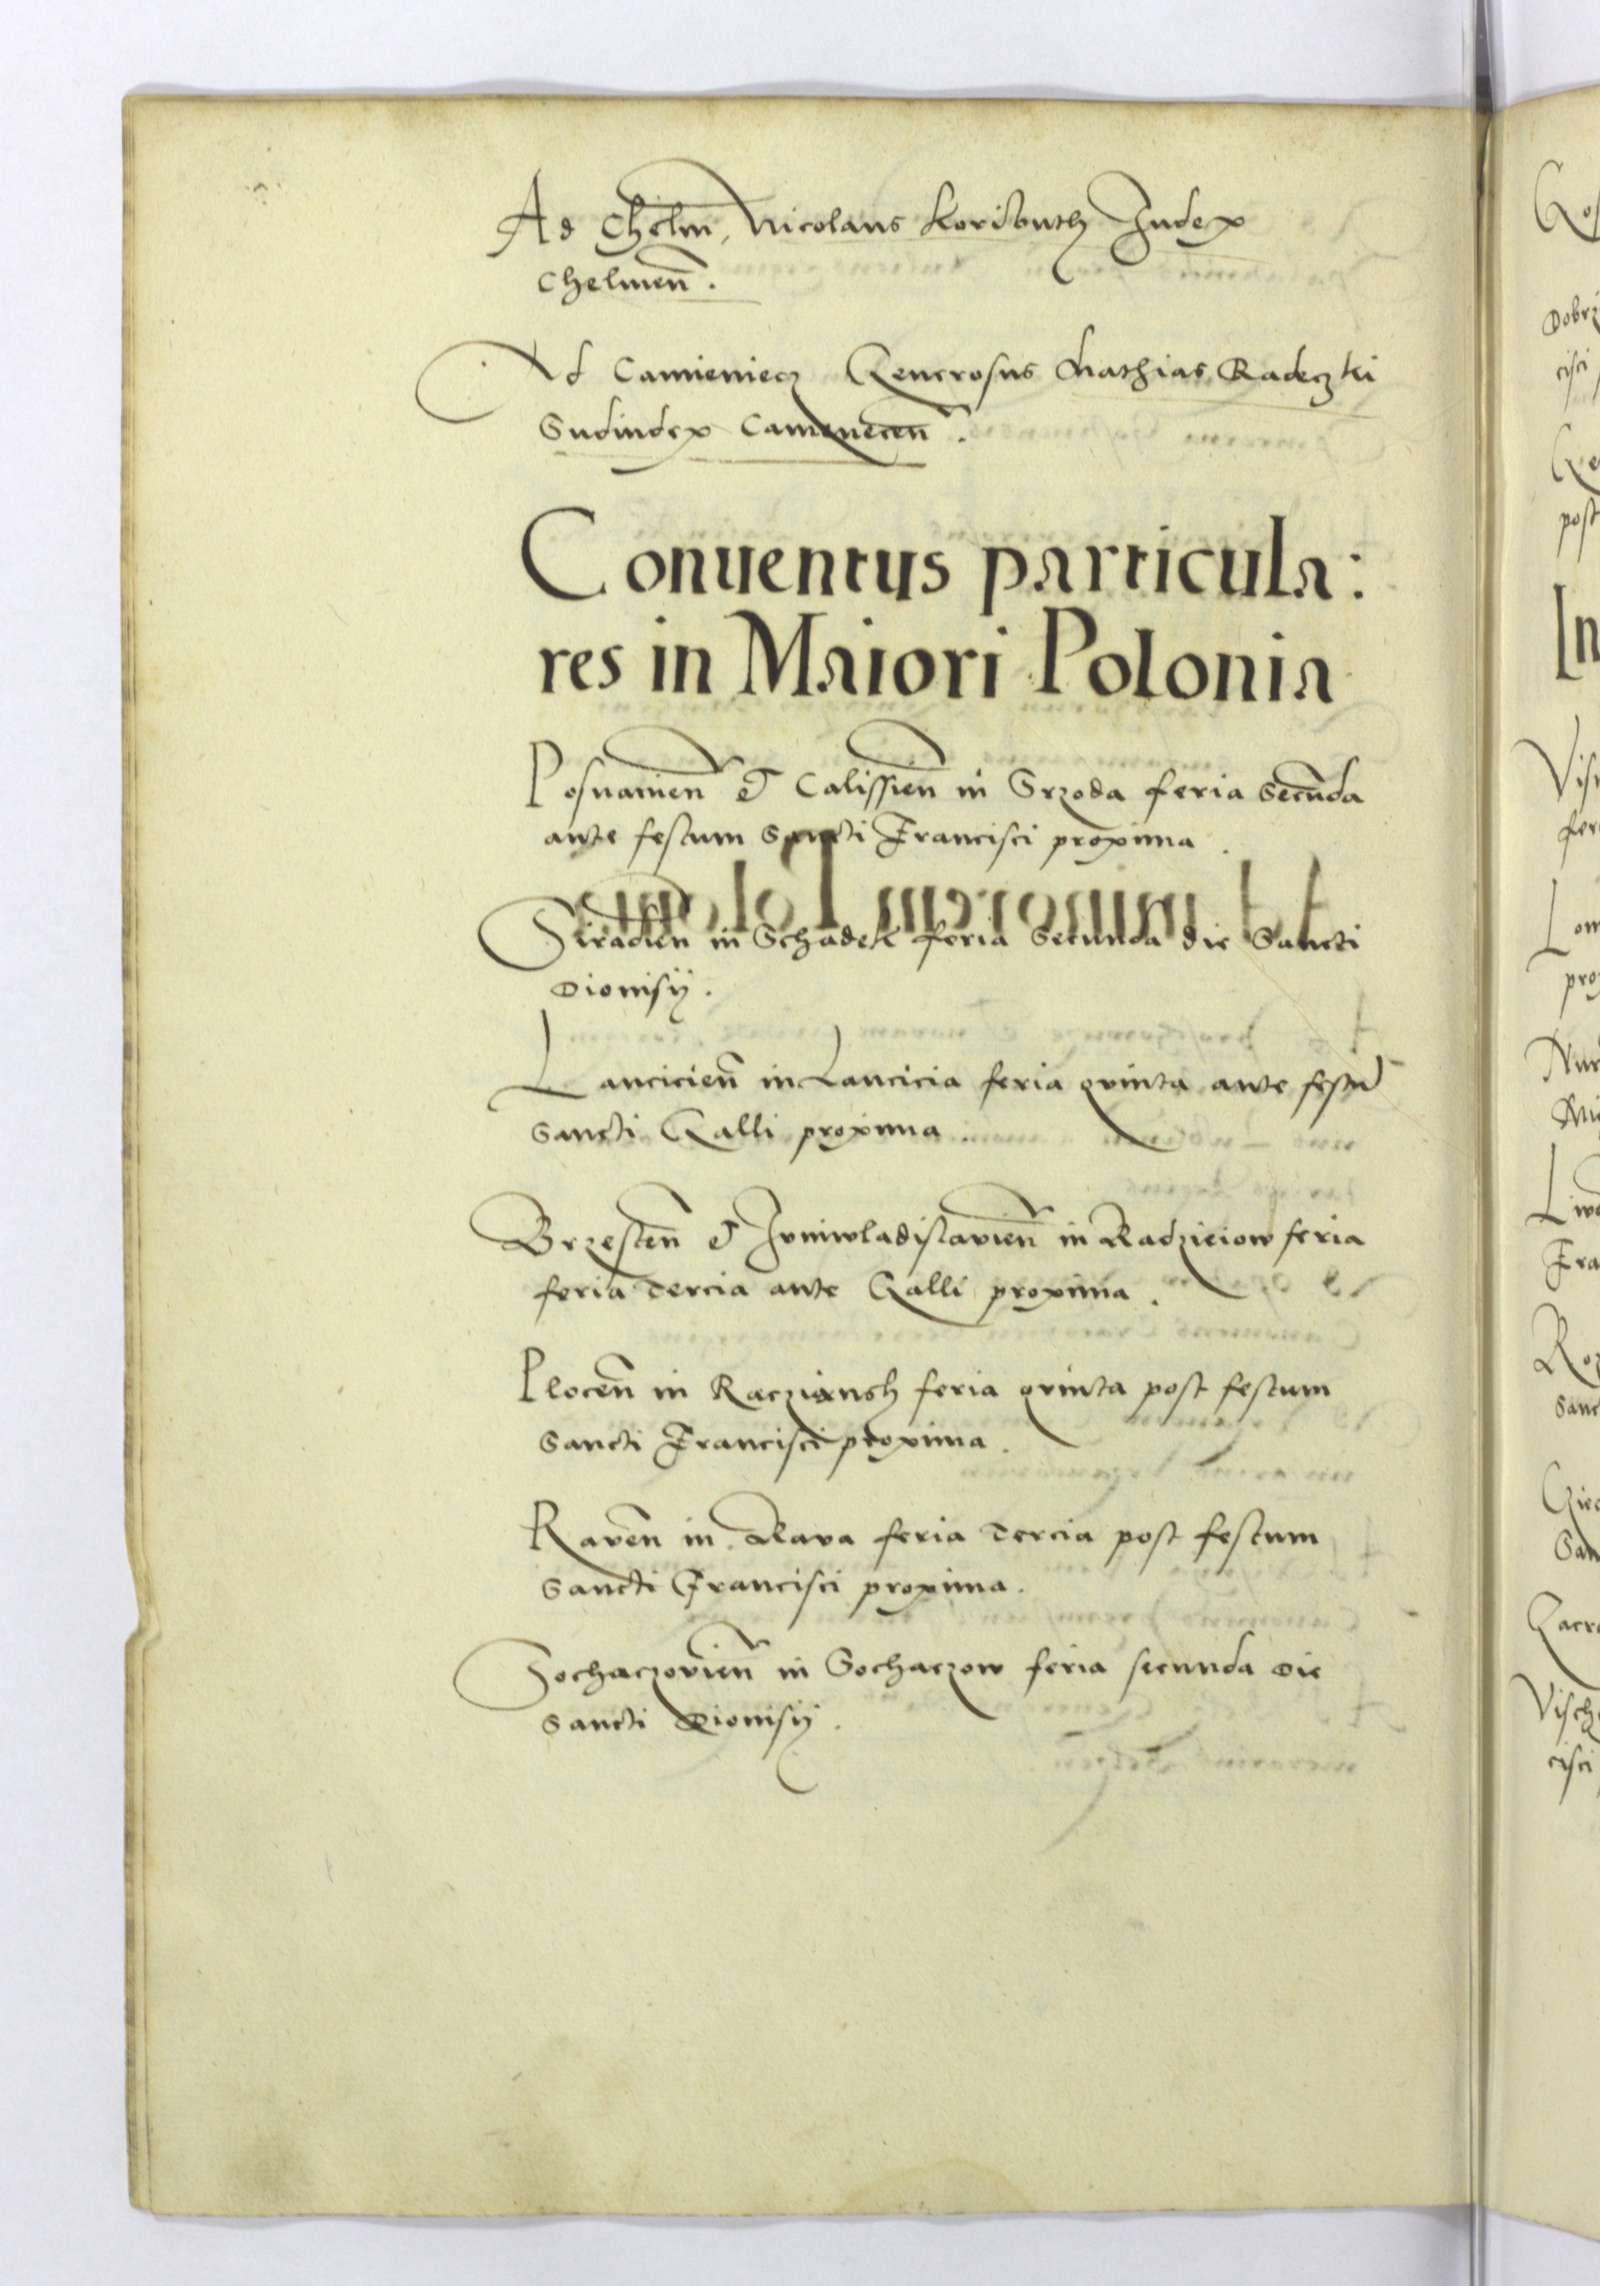 Ad Chelm, Nicolaus Koributh Judex
Chelmen̄.
Ad Camieniecz Generosus Mathias Radeczki
Subiudex Camenecen̄.
Conuentus particula:
res in Maiori Polonia
Posnanien̄ et Calissien̄ in Srzoda feria secūnda
ante festum Sancti Francisci proxima.
Siradien̄ in Schadek feria secunda die Sancti
Dionisÿ.
Lancicien̄ in Lancicia feria qvinta ante festū
Sancti Galli proxima.
Brzesten̄ et Jvniwladislavien̄ in Radzieiow feria
feria tercia ante Galli proxima.
Plocen̄ in Racziansh feria qvinta post festum
Sancti Francisci proxima.
Raven̄ in Rava feria tercia post festum
Sancti Francisci proxima.
Sochaczovien̄ in Sochaczow feria secunda die
Sancti Dionisÿ.